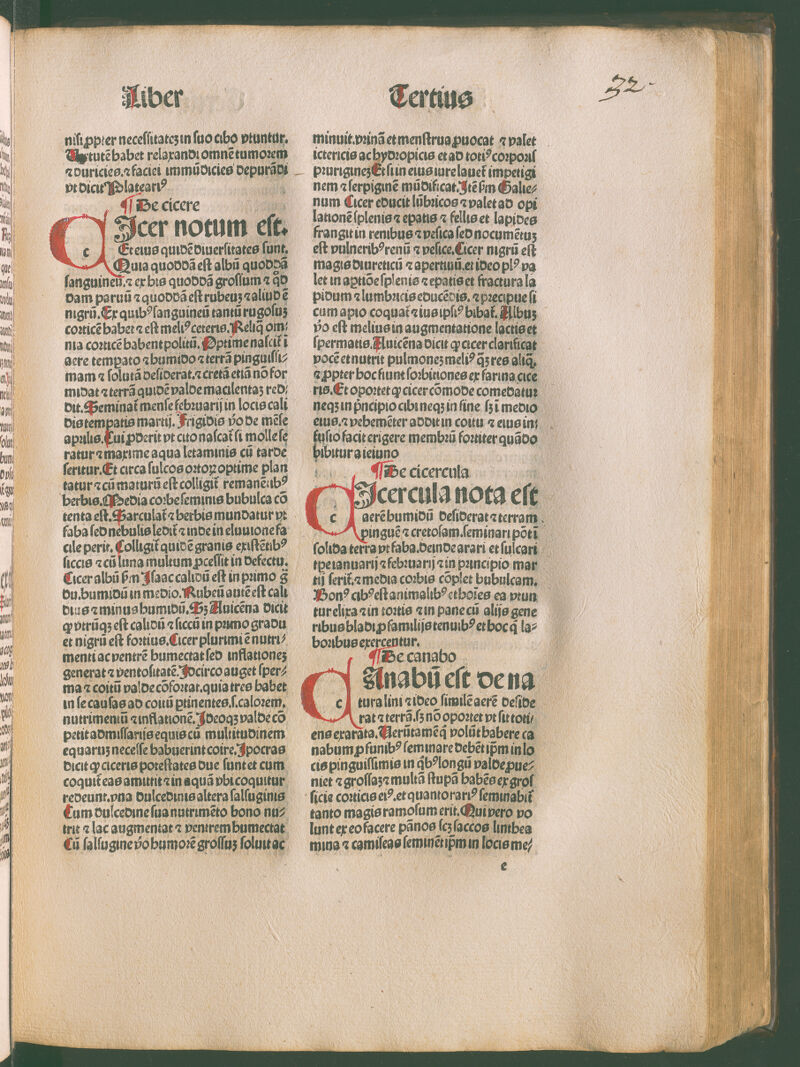 Liber Tertius
32
nisi ꝓpter necessitateʒ in suo cibo vtuntur.
Uirtutē habet relaxandi omnē tumorem
⁊ duricies.⁊ faciei immūdicies depurādi
vt dicit Plateariꝰ
¶ De cicere
c
CIcer notum est.
Et eius quidē diuersitates sunt.
Quia quoddā est albū quoddā
sanguineū.⁊ ex his quoddā grossum ⁊ qd̄
dam paruū ⁊ quoddā est rubeuʒ ⁊ aliud ē
nigrū. Ex quibꝰ sanguineū tantū rugosuʒ
corticē habet ⁊ est meliꝰ ceteris. Reliq̄ om⸗
nia corticē habent politū. Optime nascit̄ ī
aere temꝑato ⁊ humido ⁊ terrā pinguissi⸗
mam ⁊ solutā desiderat.⁊ cretā etiā nō for
midat ⁊ terrā quidē valde macilentaʒ red⸗
dit. Seminat̄ mense februarij in locis cali
dis temꝑatis martij. Frigidis v̄o de mēse
aprilis. Cui ꝓderit vt cito nascat̄ si molle se
ratur ⁊ maxime aqua letaminis cū tarde
seritur. Et circa sulcos ortoꝝ optime plan
tatur ⁊ cū maturū est colligit̄ remanētibꝰ
herbis. Media corbe seminis bubulca cō
tenta est. Sarculat̄ ⁊ herbis mundatur vt
faba sed nebulis ledit̄ ⁊ inde in eluuione fa
cile perit. Colligit̄ quidē granis existētibꝰ
siccis ⁊ cū luna multum ꝓcessit in defectu.
Cicer albū ẜm Isaac calidū est in primo g̃
du. humidū in medio. Rubeū autē est cali
dius ⁊ minus humidū. Sʒ Auicēna dicit
ꝙ vtrūqʒ est calidū ⁊ siccū in primo gradu
et nigrū est fortius. Cicer plurimi ē nutri⸗
menti ac ventrē humectat sed inflationeʒ
generat ⁊ ventositatē. Idcirco auget sper⸗
ma ⁊ coitū valde cōfortat. quia tres habet
in se causas ad coitū ꝑtinentes. s. calorem.
nutrimentū ⁊ inflationē. Ideoqʒ valde cō
petit admissarijs equis cū multitudinem
equarūʒ necesse habuerint coire. Ipocras
dicit ꝙ ciceris potestates due sunt et cum
coquit̄ eas amittit ⁊ in aquā vbi coquitur
redeunt. vna dulcedinis altera salsuginis
Cum dulcedine sua nutrimēto bono nu⸗
trit ⁊ lac augmentat ⁊ ventrem humectat
Cū salsugine v̄o humorē grossuʒ soluit ac
minuit. vrinā et menstrua ꝓuocat ⁊ valet
ictericis ac hydropicis et ad totiꝰ corporis
prurigineʒ Et si in eius iure lauet̄ impetigi
nem ⁊ serpiginē mūdificat. Itē ẜm Galie⸗
num Cicer educit lūbricos ⁊ valet ad opi
lationē splenis ⁊ epatis ⁊ fellis et lapides
frangit in renibus ⁊ vesica sed nocumētuʒ
est vulneribꝰ renū ⁊ vesice. Cicer nigrū est
magis diureticū ⁊ apertiuū. et ideo plꝰ va
let in aptiōe splenis ⁊ epatis et fractura la
pidum ⁊ lumbricis educēdis. ⁊ precipue si
cum apio coquat̄ ⁊ ius ipsiꝰ bibat̄. Albuʒ
v̄o est melius in augmentatione lactis et
spermatis. Auicēna dicit ꝙ cicer clarificat
vocē et nutrit pulmoneʒ meliꝰ q̄ʒ res aliq̄.
⁊ ꝓpter hoc fiunt sorbitiones ex farina cice
ris. Et oportet ꝙ cicer cōmode comedatur
neqʒ in prīncipio cibi neqʒ in fine sʒ ī medio
eius. ⁊ vehemēter addit in coitu ⁊ eius in⸗
fusio facit erigere membrū fortiter quādo
bibitur a ieiuno
¶ De cicercula
c
CIcercula nota est
aerē humidū desiderat ⁊ terram
pinguē ⁊ cretosam. seminari pōt ī
solida terra vt faba. deinde arari et sulcari
tpe ianuarij ⁊ februarij ⁊ in principio mar
tij serit̄. ⁊ media corbis cōplet bubulcam.
Bonꝰ cibꝰ est animalibꝰ et hoīes ea vtun
tur elixa ⁊ in tortis ⁊ in pane cū alijs gene
ribus bladi ꝓ familijs tenuibꝰ et hoc q̄ la⸗
boribus exercentur.
¶ De canabo
c
CAnabū est de na
tura lini ⁊ ideo similē aerē deside
rat ⁊ terrā. sʒ nō oportet vt sit toti⸗
ens exarata. Uerūtamē q̄ volūt habere ca
nabum ꝓ funibꝰ seminare debēt ip̄m in lo
cis pinguissimis in q̄bꝰ longū valde ꝓue⸗
niet ⁊ grossaʒ ⁊ multā stupā habēs ex gros
sicie corticis eiꝰ. et quanto rariꝰ seminabit̄
tanto magis ramosum erit. Qui vero vo
lunt ex eo facere pānos scʒ saccos linthea
mina ⁊ camiseas seminēt ip̄m in locis me⸗
e